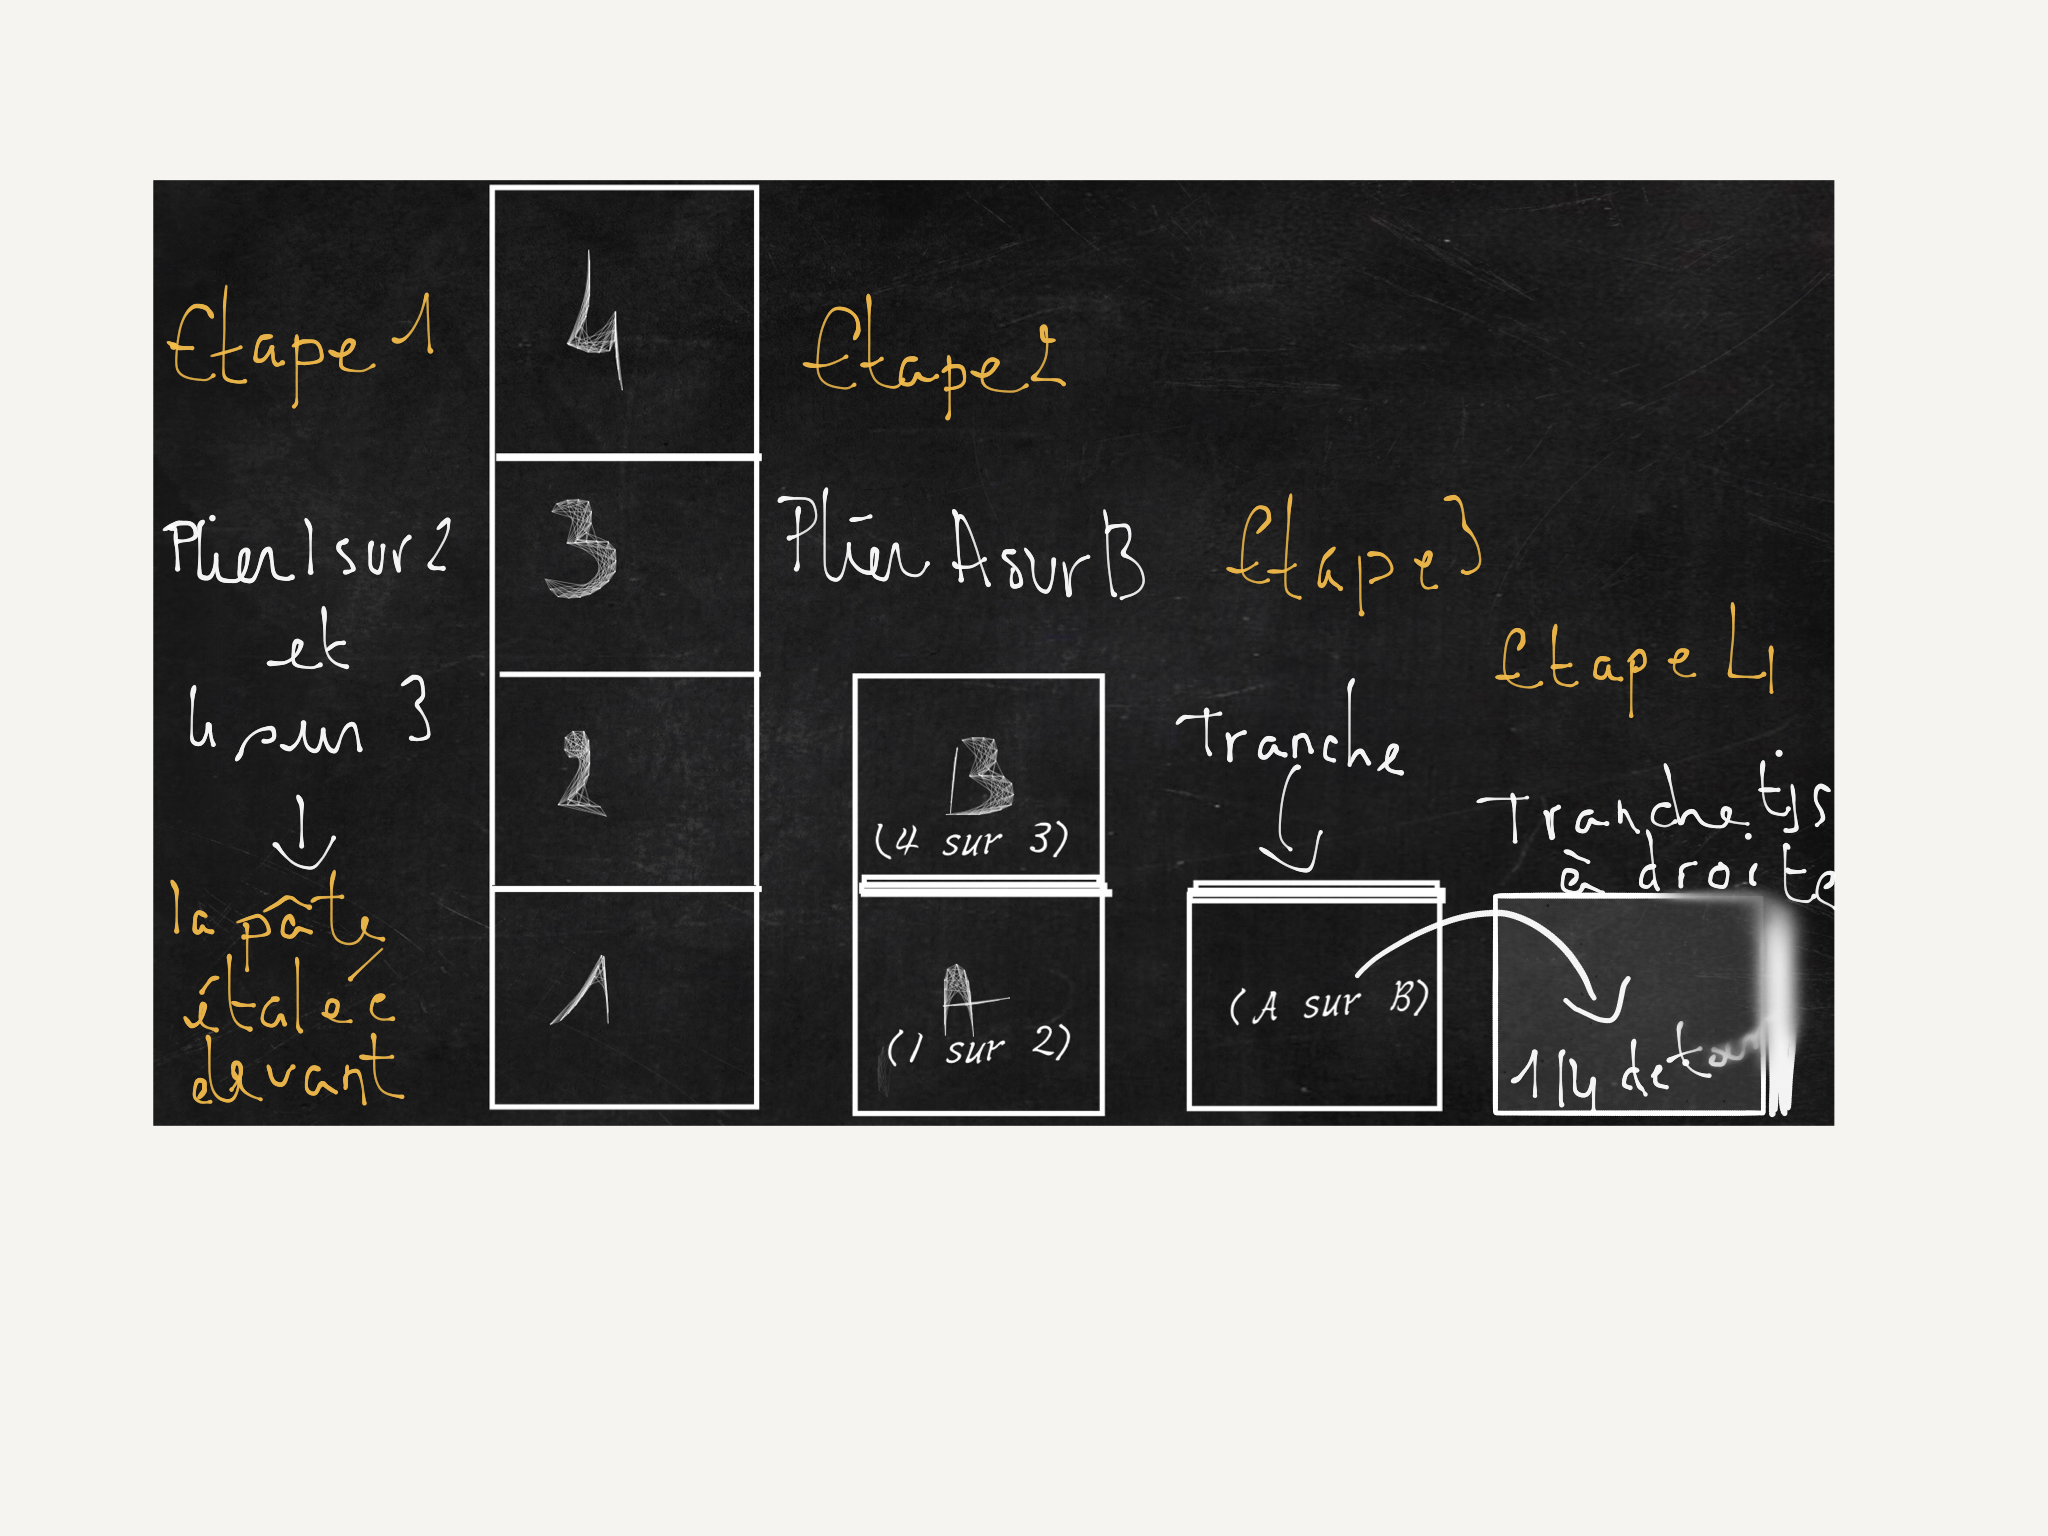 Etape 1
Plier 1 sur 2
et
4 sur 3
la pâte
étalée
devant
4
3
2
1
Etape 2
Plier A sur B
B
(4 sur 3)
A
(1 sur 2)
Etape 3
Tranche
(A sur B)
Etape 4
Tranche tjs
à droite
1/4 de tour